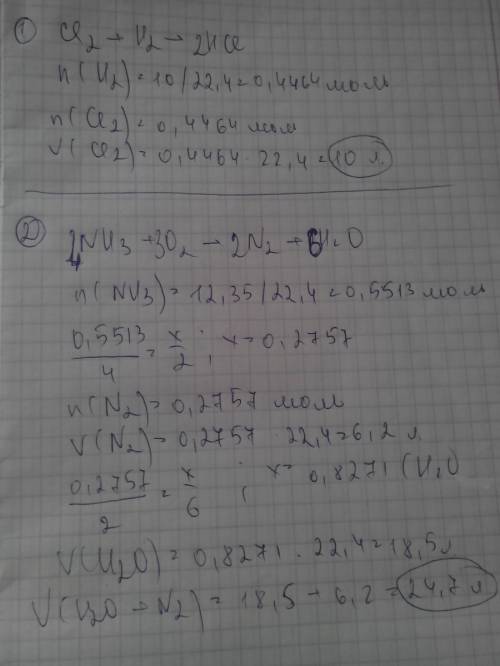 ① Cl₂ + H₂ → 2HCl
n(H₂) = 10/22,4 = 0,4464 моль
n(Cl₂) = 0,4464 моль
V(Cl₂) = 0,4464 · 22,4 = 10 л.
② 4NH3 + 3O₂ → 2N₂ + 6H₂O
n(NH3) = 12,35/22,4 = 0,5513 моль
0,5513/4 = x/2 ; x = 0,2757
n(N₂) = 0,2757 моль
V(N₂) = 0,2757 · 22,4 = 6,2 л
0,2757/2 = x/6 ; x = 0,8271 (H₂O)
V(H₂O) = 0,8271 · 22,4 = 18,5 л
V(H2O + N₂) = 18,5 + 6,2 = 24,7 л